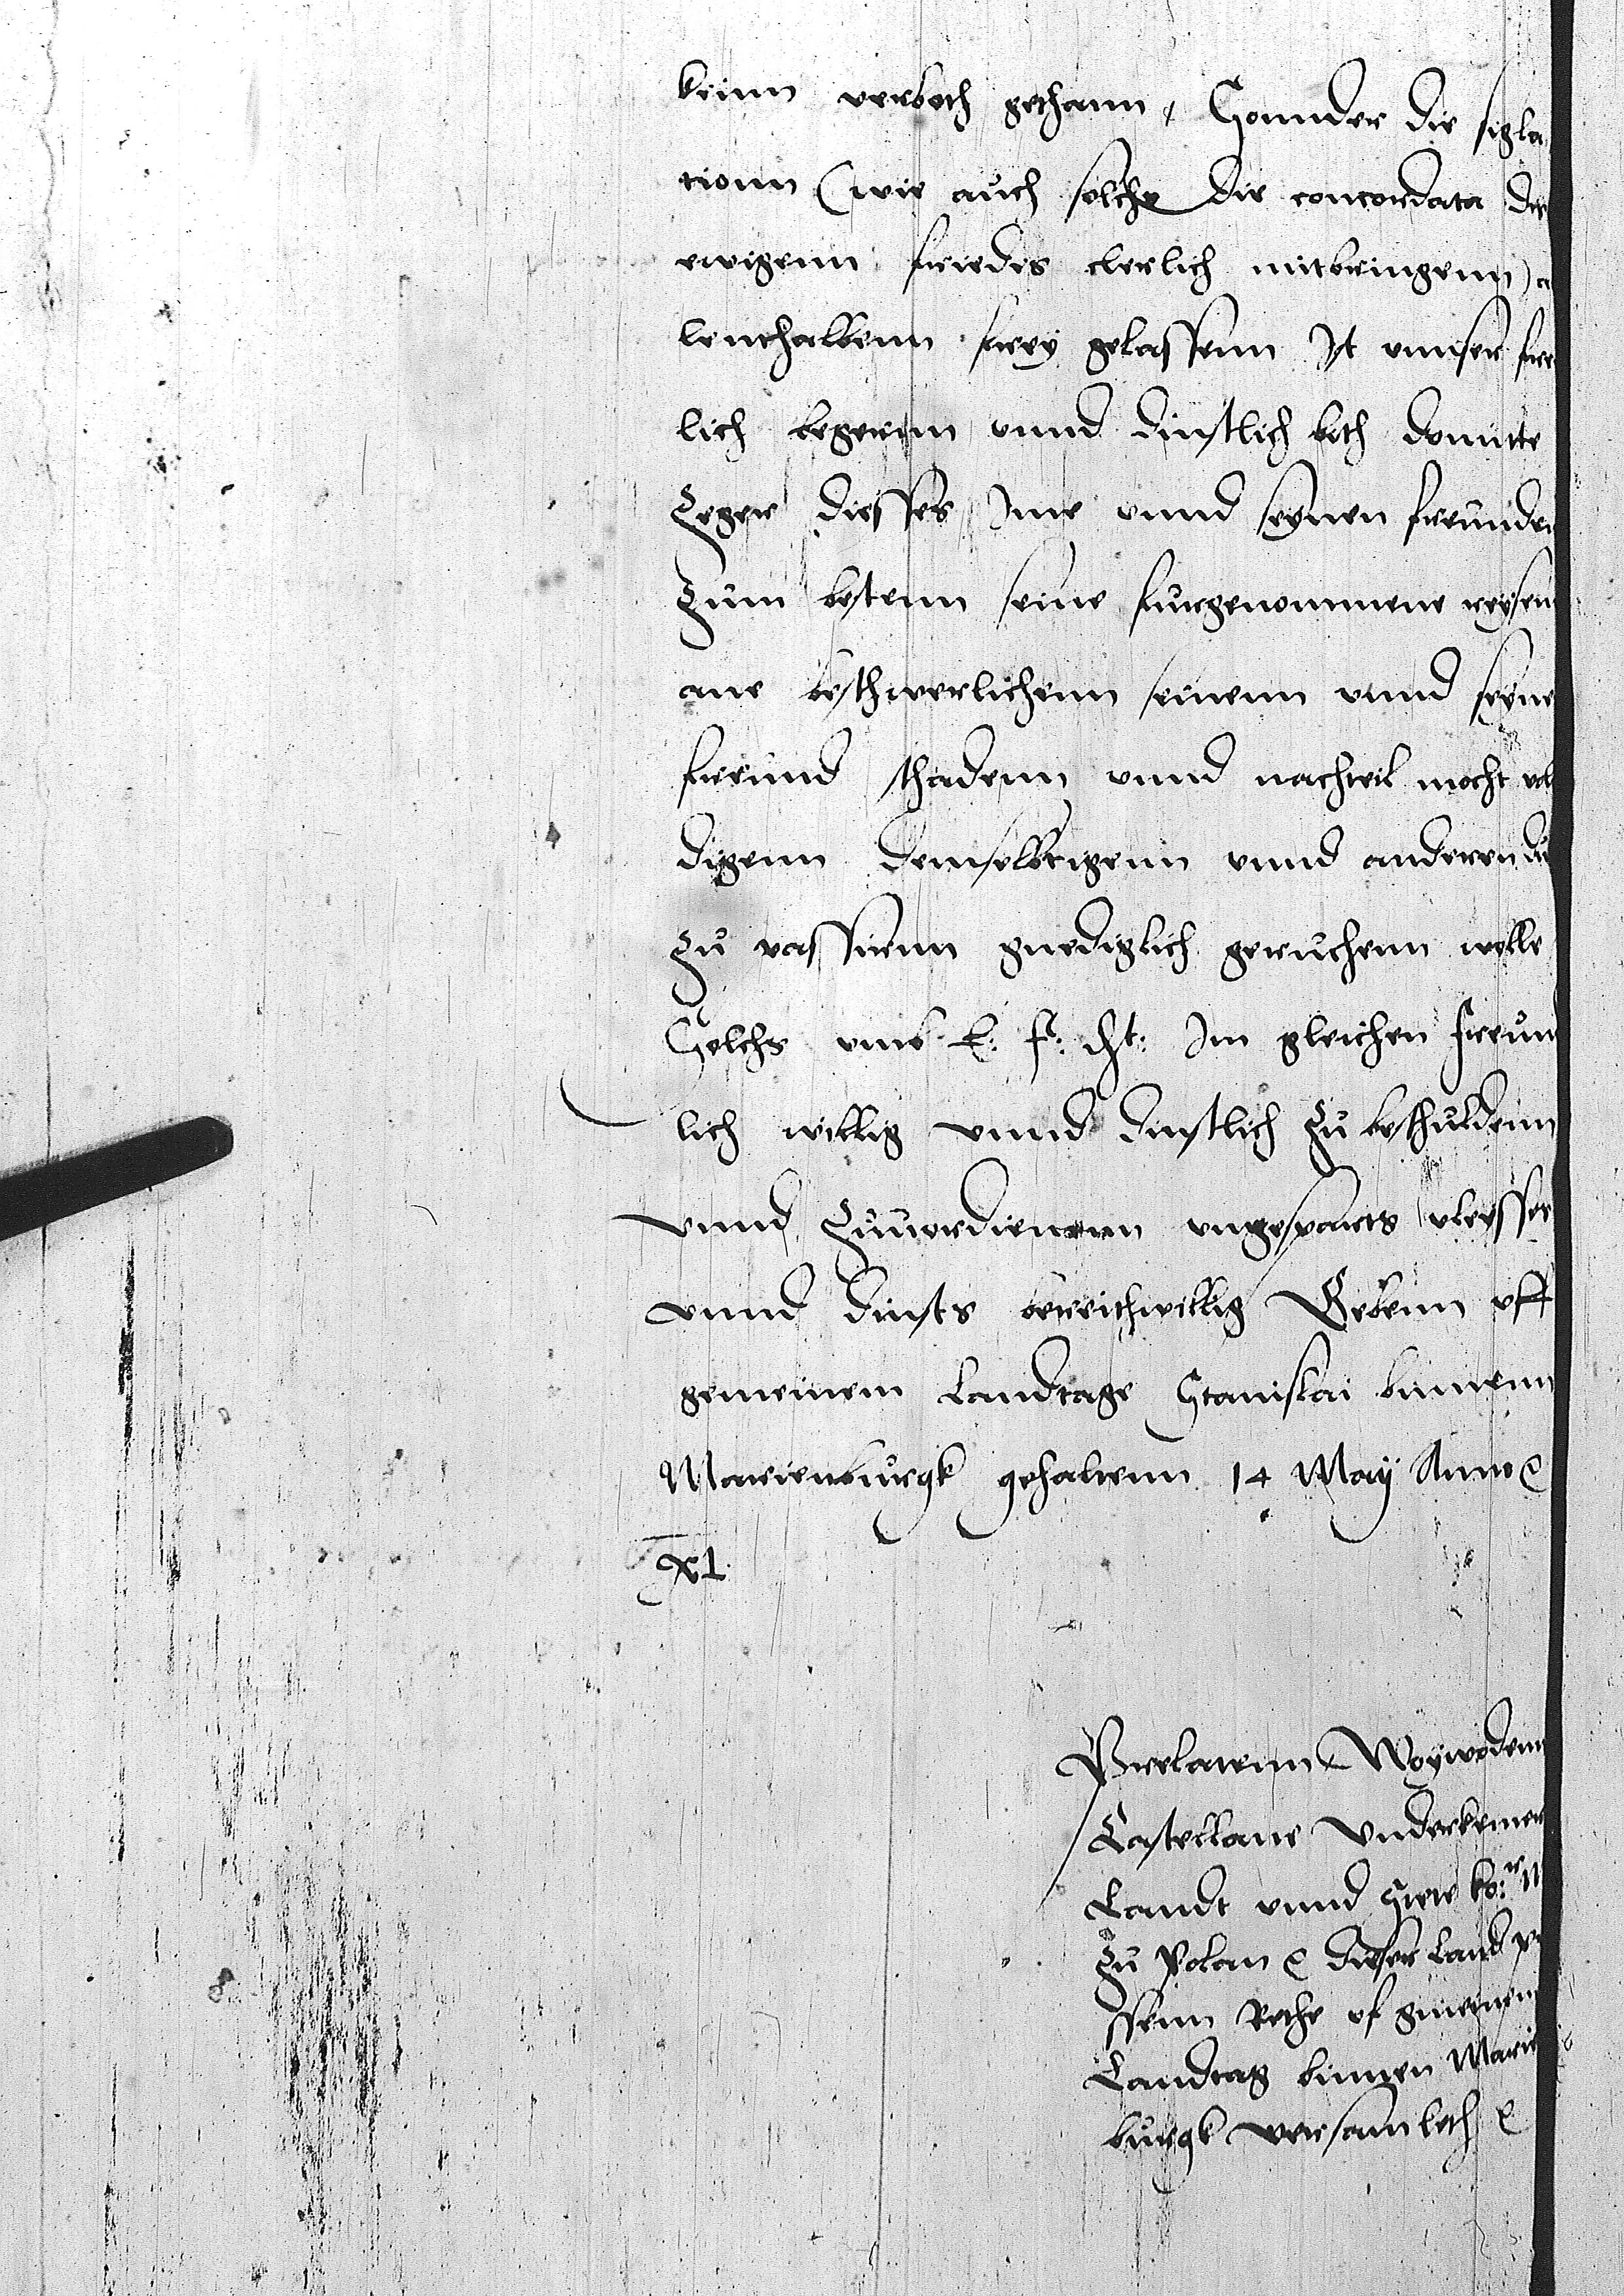 keinn verboth gethann, Sonnder die sigla-
tionn (wie auch solche die concordata des
ewigenn friedes clerlich mitbringenn) a
lenthalbenn frey gelassenn Ist vnnser fre
lich begerenn vnnd dinstlich beth domitte
Zeger disses Ime vnnd seynen freunden
Zum bestenn seine furgenommene reysenn
ane beschwerlichenn seinenn vnnd seyne
freund schadenn vnnd nachteil mocht vol
digenn demselbtigenn vnnd anderen du
Zu passirenn gnediglich geruchenn wolle
Solchs vmb E: f: dt: Im gleichen freun
lich willig vnnd dinstlich zu beschuldenn
vnnd Zuuordienenn vngesparts vleysses
vnnd dinsts bereithwillig Gebenn vff
gemeinem Landtage Stanislai binnenn
Marienburgk gehaltenn 14 May Anno &
xl.
Prelatenn Woywodenn
Castellane Vnderkemer
Landt vnnd Stete ko:r M
Zu Polan & dieser Land pr
ssenn Rethe vf gmeinem
Landtag binnen Marie
burgk versamleth &